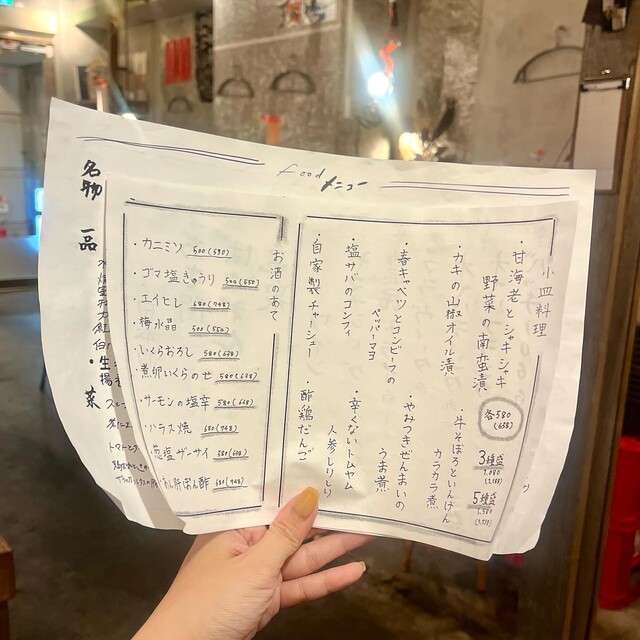 food メニュー
小皿料理
・甘海老とシャキシャキ
野菜の南蛮漬
・カキの山椒オイル漬
・春キャベツとコンビーフの
ペッパーマヨ
・塩サバのコンフィ
・自家製チャーシュー
・牛そぼろといんげん
カラカラ煮
・やみつきぜんまいの
うま煮
・辛くないトムヤム
人参しりしり
・酢鶏だんご
各580
(638)
3種盛
1,080
(1,188)
5種盛
1,580
お酒のあて
・カニミソ 500(590)
・ゴマ塩きゅうり 500(550)
・エイヒレ 680(748)
・梅水晶 500(550)
・いくらおろし 580(638)
・煮卵いくらのせ 580(638)
・サーモンの塩辛 580(638)
・ハラス焼 680(748)
塩ザーサイ 580(638)
肝ぽん酢 680(748)
名物
一品
・生
揚
菜